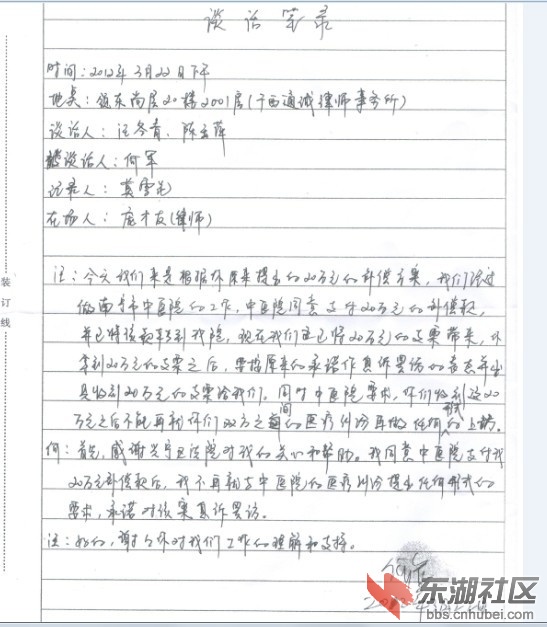 谈话笔录
时间：2012年3月22日下午
地点：领东尚层20楼2001房（广西通诚律师事务所）
谈话人：汪冬青、陈玉萍
被谈话人：何军
记录人：莫雪花
在场人：庞才友（律师）
汪：今天我们来是根据你原来提出的20万元的补偿方案，我们经过
做南宁市中医院的工作，中医院同意支付20万元的补偿款，
并已将该款转到我院，现在我们也已将20万元的支票带来，你
拿到20万元的支票之后，要按原来的承诺作息诉罢访的表态并出
具收到20万元的支票给我们，同时中医院要求，你们收到这20
万元之后不能再就你们双方之间的医疗纠纷再做任何形式的上访。
何：首先，感谢兴宁区法院对我的关心和帮助。我同意中医院支付我
20万元补偿款后，我不再就支中医院的医疗纠纷提出任何形式的
要求，承诺对该案息诉罢访。
汪：好的，谢谢你对我们工作的理解和支持。
装订线
东湖社区
bbs.cnhubei.com